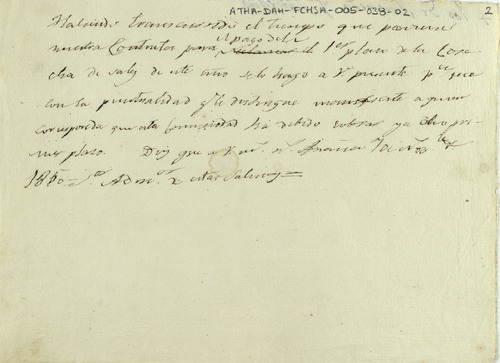 ATHA-DAH-FCHSA-005-038-02
2
Habiendo transcurrido el tiempo que previene
el pago del
nuestra Contrata para el 1er plazo de la Cose
cha de sal de este año se lo hago a V. presente pa. que
con la puntualidad q. le distingue manifieste a quien
corresponda que esta Comunidad ha debido cobrar ya dho pri
mer plazo. Dios gue a V. ms. as. Añana
1850 = Sor. Admor. de estas Salinas =